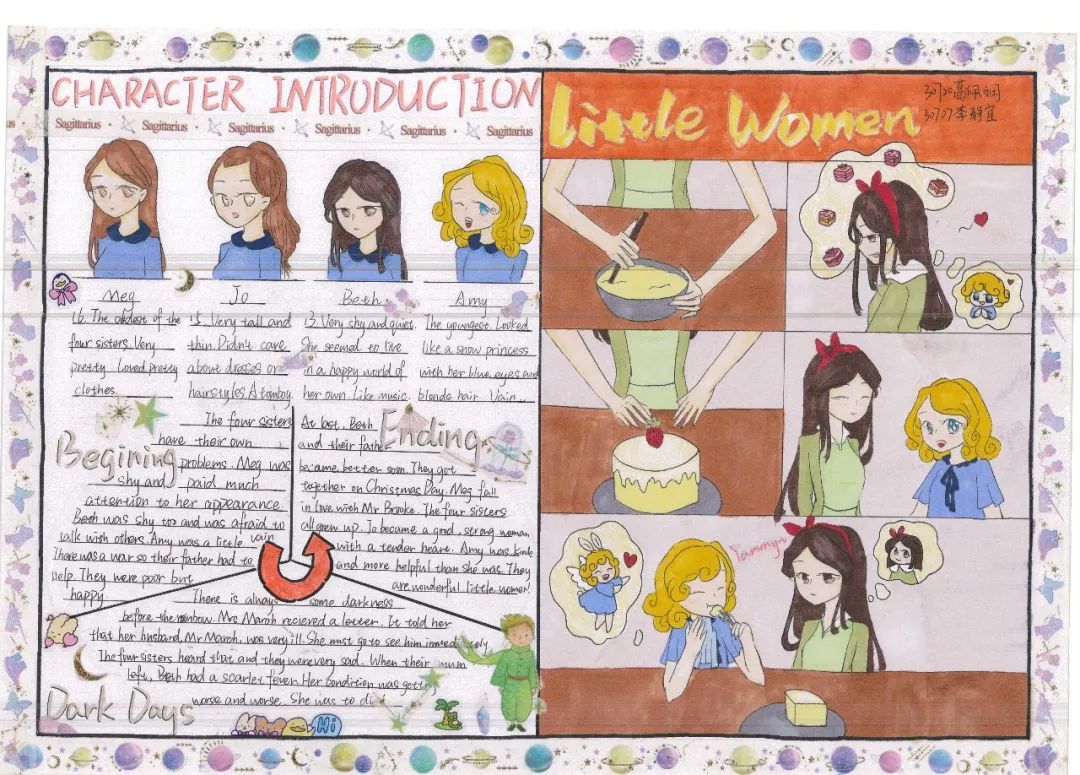 CHARACTER INTRODUCTION
Sagittarius · Sagittarius · Sagittarius · Sagittarius · Sagittarius · Sagittarius
Meg
16. The oldest of the
four sisters. Very
pretty. Loved pretty
clothes.
Jo
15. Very tall and
thin. Didn't care
about dresses or
hairstyles. A tomboy.
Beth
13. Very shy and quiet.
She seemed to live
in a happy world of
her own. Like music.
Amy
The youngest. Looked
like a snow princess
with her blue eyes and
blonde hair. Vain.
Begining
The four sisters
have their own
problems. Meg was
shy and paid much
attention to her appearance.
Beth was shy too and was afraid to
talk with others. Amy was a little vain.
There was a war so their father had to
help. They were poor but
happy.
Ending
At last, Beth
and their father
became better soon. They got
together on Christmas Day. Meg fall
in love with Mr Brooke. The four sisters
all grew up. Jo became a good, strong woman
with a tender heart. Amy was kinder
and more helpful than she was. They
are wonderful little women.
There is always some darkness
before the rainbow. Mrs March recieved a letter. It told her
that her husband, Mr March, was very ill. She must go to see him immediately.
The four sisters heard that and they were very sad. When their mum
left, Beth had a scarlet fever. Her condition was getting
worse and worse. She was to die
Dark Days
Hi
Little Women
30720
30707李静宜
Yammy~